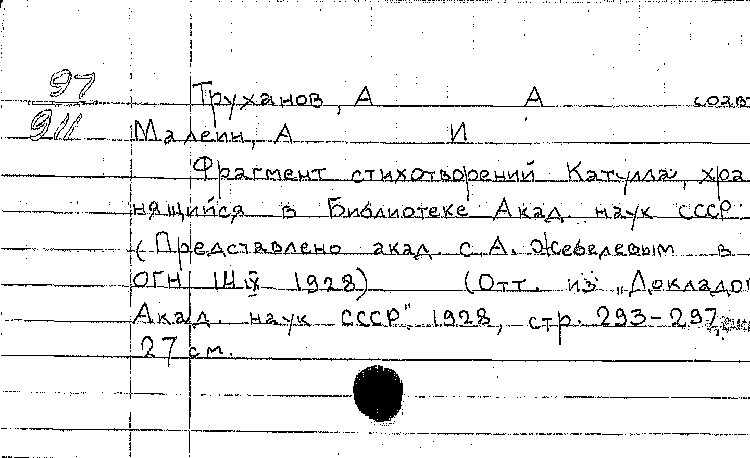 97
911
Труханов, А А соав
Малеин, А И
Фрагмент стихотворений Катулла, хра
нящийся в Библиотеке Акад. наук СССР.
(Представлено акад. С. А. Жебелевым в
ОГН 1928) (Отт. из „Докладов
Акад. наук СССР." 1928, стр. 293-297,
27 см.